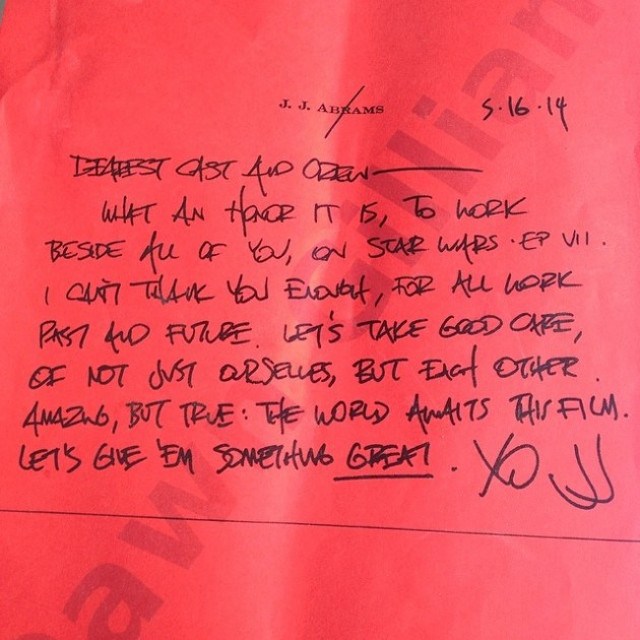 J. J. ABRAMS
5.16.14
DEAREST CAST AND CREW—
WHAT AN HONOR IT IS, TO WORK
BESIDE ALL OF YOU, ON STAR WARS · EP VII.
I CAN'T THANK YOU ENOUGH, FOR ALL WORK
PAST AND FUTURE. LET'S TAKE GOOD CARE,
OF NOT JUST OURSELVES, BUT EACH OTHER.
AMAZING, BUT TRUE: THE WORLD AWAITS THIS FILM.
LET'S GIVE 'EM SOMETHING GREAT. XO JJ